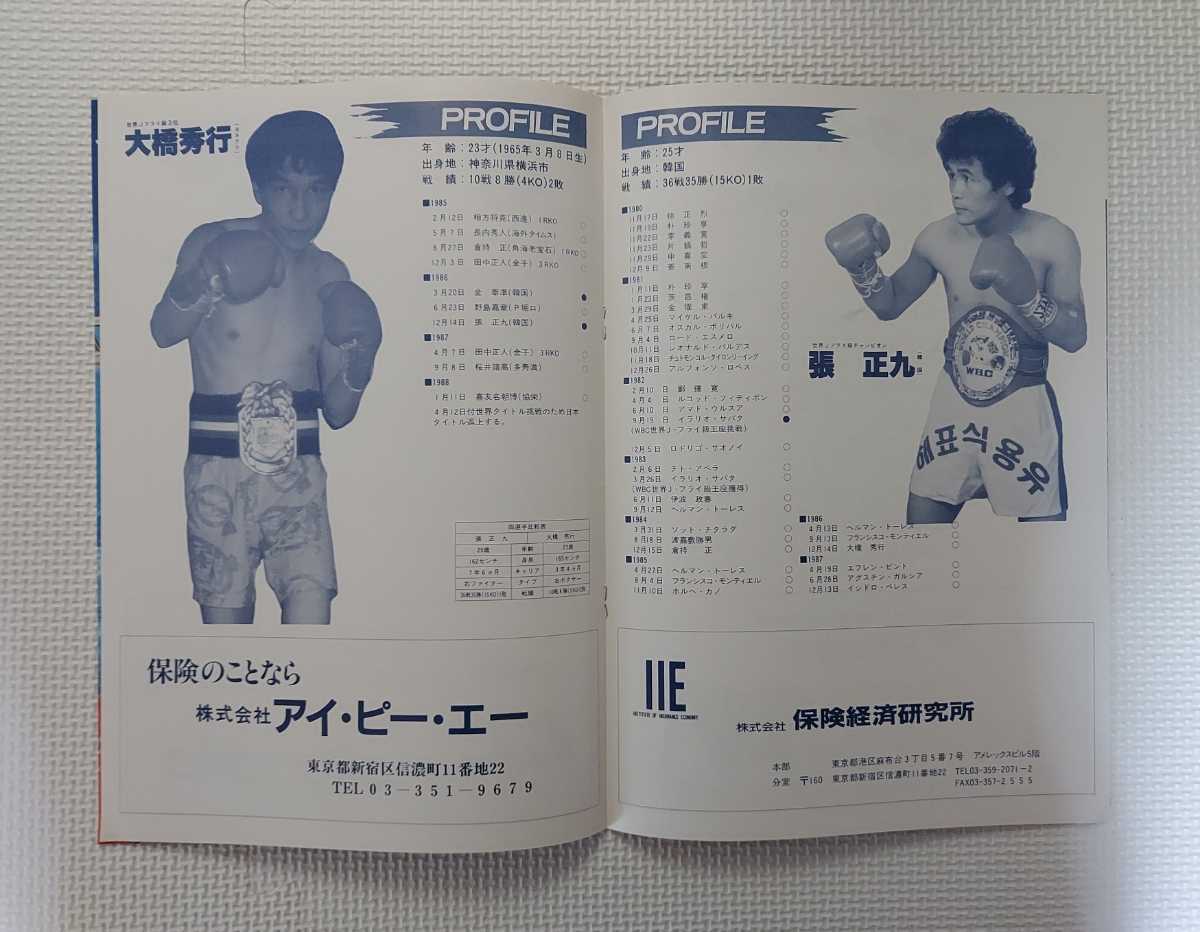 世界Jフライ級3位
大橋秀行
PROFILE
年 齢：23才(1965年3月8日生)
出身地：神奈川県横浜市
戦 績：10戦8勝(4KO)2敗
■1985
2月12日 相方将克(西遠) 1RKO ○
5月7日 長内秀人(海外タイムス) ○
8月27日 倉持 正(角海老宝石) 1RKO ○
12月3日 田中正人(金子) 3RKO ○
■1986
3月20日 金 奉準(韓国) ●
6月23日 野島嘉章(P堀口) ○
12月14日 張 正九(韓国) ●
■1987
4月7日 田中正人(金子) 3RKO ○
9月8日 桜井靖高(多寿満) ○
■1988
1月11日 喜友名朝博(協栄) ○
4月12日付世界タイトル挑戦のため日本
タイトル返上する。
両選手比較表
張 正 九 大橋 秀行
25歳 年齢 23歳
162センチ 身長 165センチ
7年6ヵ月 キャリア 3年4ヵ月
右ファイター タイプ 右ボクサー
36戦35勝(15KO)1敗 戦績 10戦8勝(4KO)2敗
保険のことなら
株式会社 アイ・ピー・エー
東京都新宿区信濃町11番地22
TEL 03—351—9679
PROFILE
年 齢：25才
出身地：韓国
戦 績：36戦35勝(15KO)1敗
世界Jフライ級チャンピオン
張 正九
WBC
해표식용유
■1980
■1981
4月25日 マイケル・バルキ ○
6月7日 オスカル・ボリバル ○
9月4日 ロード・エスメロ ○
10月11日 レオナルド・パルデス ○
11月18日 チュトモンコル・タイコンリーイング ○
12月26日 アルフォンソ・ロペス ○
■1982
4月4日 ルコッド・フィティポン ○
6月10日 アマド・ウルスア ○
9月15日 イラリオ・サパタ ●
(WBC世界J・フライ級王座挑戦)
12月5日 ロドリゴ・サオノイ ○
■1983
2月6日 チト・アベラ ○
3月26日 イラリオ・サパタ ○
(WBC世界J・フライ級王座獲得)
6月11日 伊波 政春 ○
9月12日 ヘルマン・トーレス ○
■1984
3月31日 ソット・チタラダ ○
8月18日 渡嘉敷勝男 ○
12月15日 倉持 正 ○
■1985
4月27日 ヘルマン・トーレス ○
8月4日 フランシスコ・モンティエル ○
11月10日 ホルヘ・カノ ○
■1986
4月13日 ヘルマン・トーレス ○
9月13日 フランシスコ・モンティエル ○
12月14日 大橋 秀行 ○
■1987
4月19日 エフレン・ピント ○
6月28日 アグスチン・ガルシア ○
12月13日 イシドロ・ペレス ○
IIE
INSTITUTE OF INSURANCE ECONOMY
株式会社 保険経済研究所
本部 東京都港区麻布台3丁目5番7号 アメレックスビル5階
分室 〒160 東京都新宿区信濃町11番地22 TEL03-359-2071-2
FAX03-357-2555